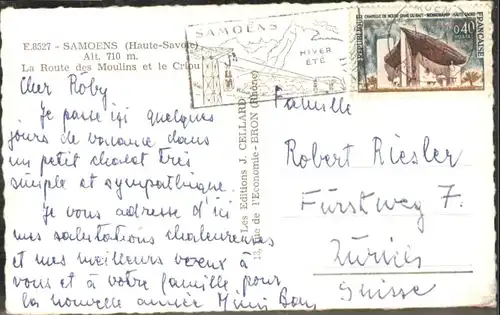 E.8527 - SAMOENS (Haute-Savoie)
Alt. 710 m.
La Route des Moulins et le Criou
SAMOËNS
HIVER
ÉTÉ
CHAPELLE DE NOTRE-DAME DU HAUT - RONCHAMP HAUTE-SAÔNE
0,40
POSTES
FRANÇAISE
Cher Röby
Je passe ici quelques
jours de vacance dans
un petit chalet très
simple et sympathique.
Je vous adresse d'ici
mes salutations chaleureuses
et mes meilleurs vœux à
vous et à votre famille pour
la nouvelle année
Les Editions J. CELLARD
Rue de l'Economie - BRON (Rhône)
Famille
Robert Riesler
Fürstweg 7.
Zürich
Suisse